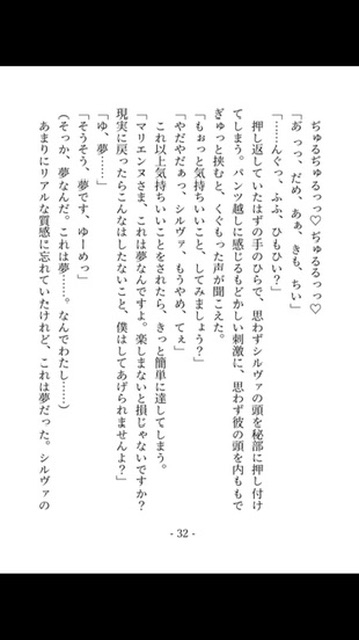 ぢゅるぢゅるっっ♡ ぢゅるるっっ♡
「あ゛っっ、だめ、あぁ、きも、ちい」
「……んぐっ、ふふ、ひもひい？」
押し返していたはずの手のひらで、思わずシルヴァの頭を秘部に押し付け
てしまう。パンツ越しに感じるもどかしい刺激に、思わず彼の頭を内ももで
ぎゅっと挟むと、くぐもった声が聞こえた。
「もぉっと気持ちいいこと、してみましょう？」
「やだやだぁっ、シルヴァ、もうやめ、てぇ」
これ以上気持ちいいことをされたら、きっと簡単に達してしまう。
「マリエンヌさま、これは夢なんですよ。楽しまないと損じゃないですか？
現実に戻ったらこんなはしたないこと、僕はしてあげられませんよ？」
「ゆ、夢……」
「そうそう、夢です、ゆーめっ」
（そっか、夢なんだ。これは夢……。なんでわたし……）
あまりにリアルな質感に忘れていたけれど、これは夢だった。シルヴァの
- 32 -